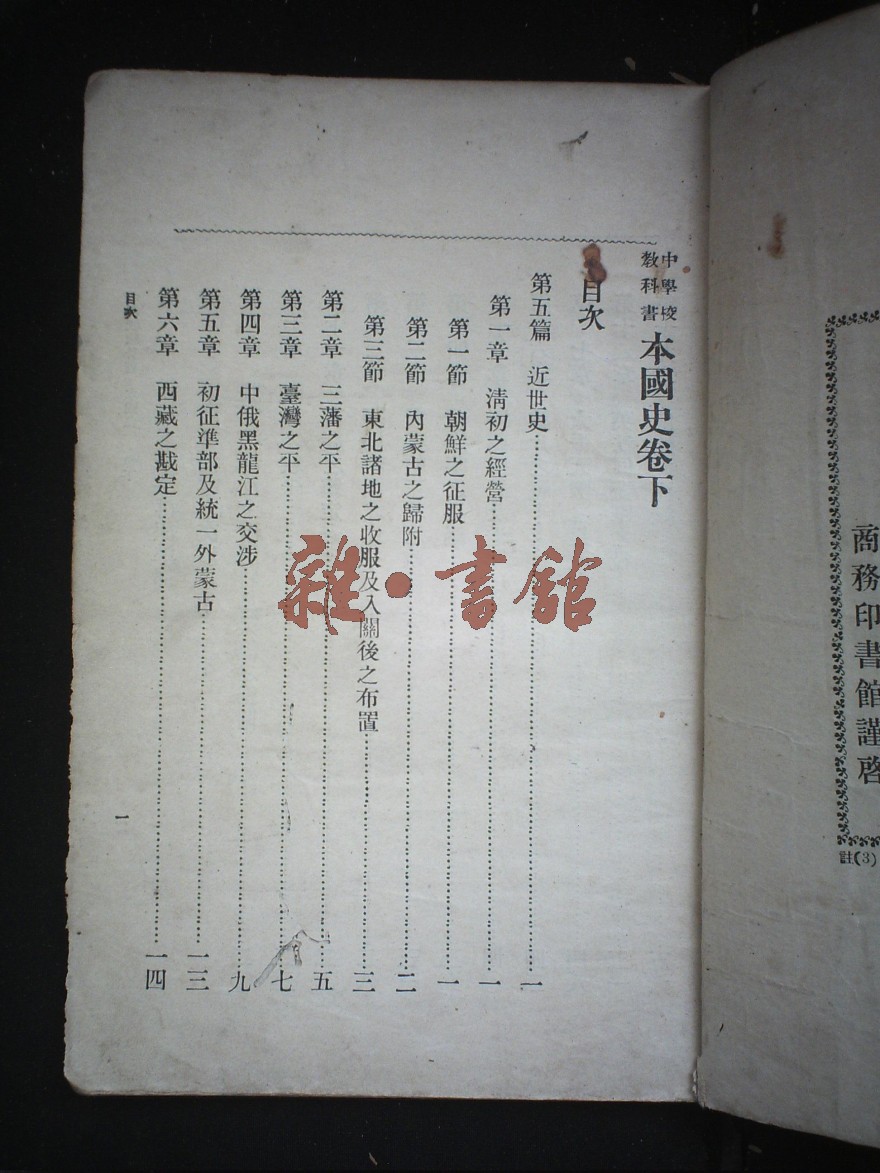 中學校
教科書
本國史卷下
目次
第五篇 近世史……一
第一章 清初之經營……一
第一節 朝鮮之征服……一
第二節 內蒙古之歸附……二
第三節 東北諸地之收服及入關後之布置……三
第二章 三藩之平……五
第三章 臺灣之平……七
第四章 中俄黑龍江之交涉……九
第五章 初征準部及統一外蒙古……一三
第六章 西藏之戡定……一四
目次
一
商務印書館謹啓
註(3)
雜·書館